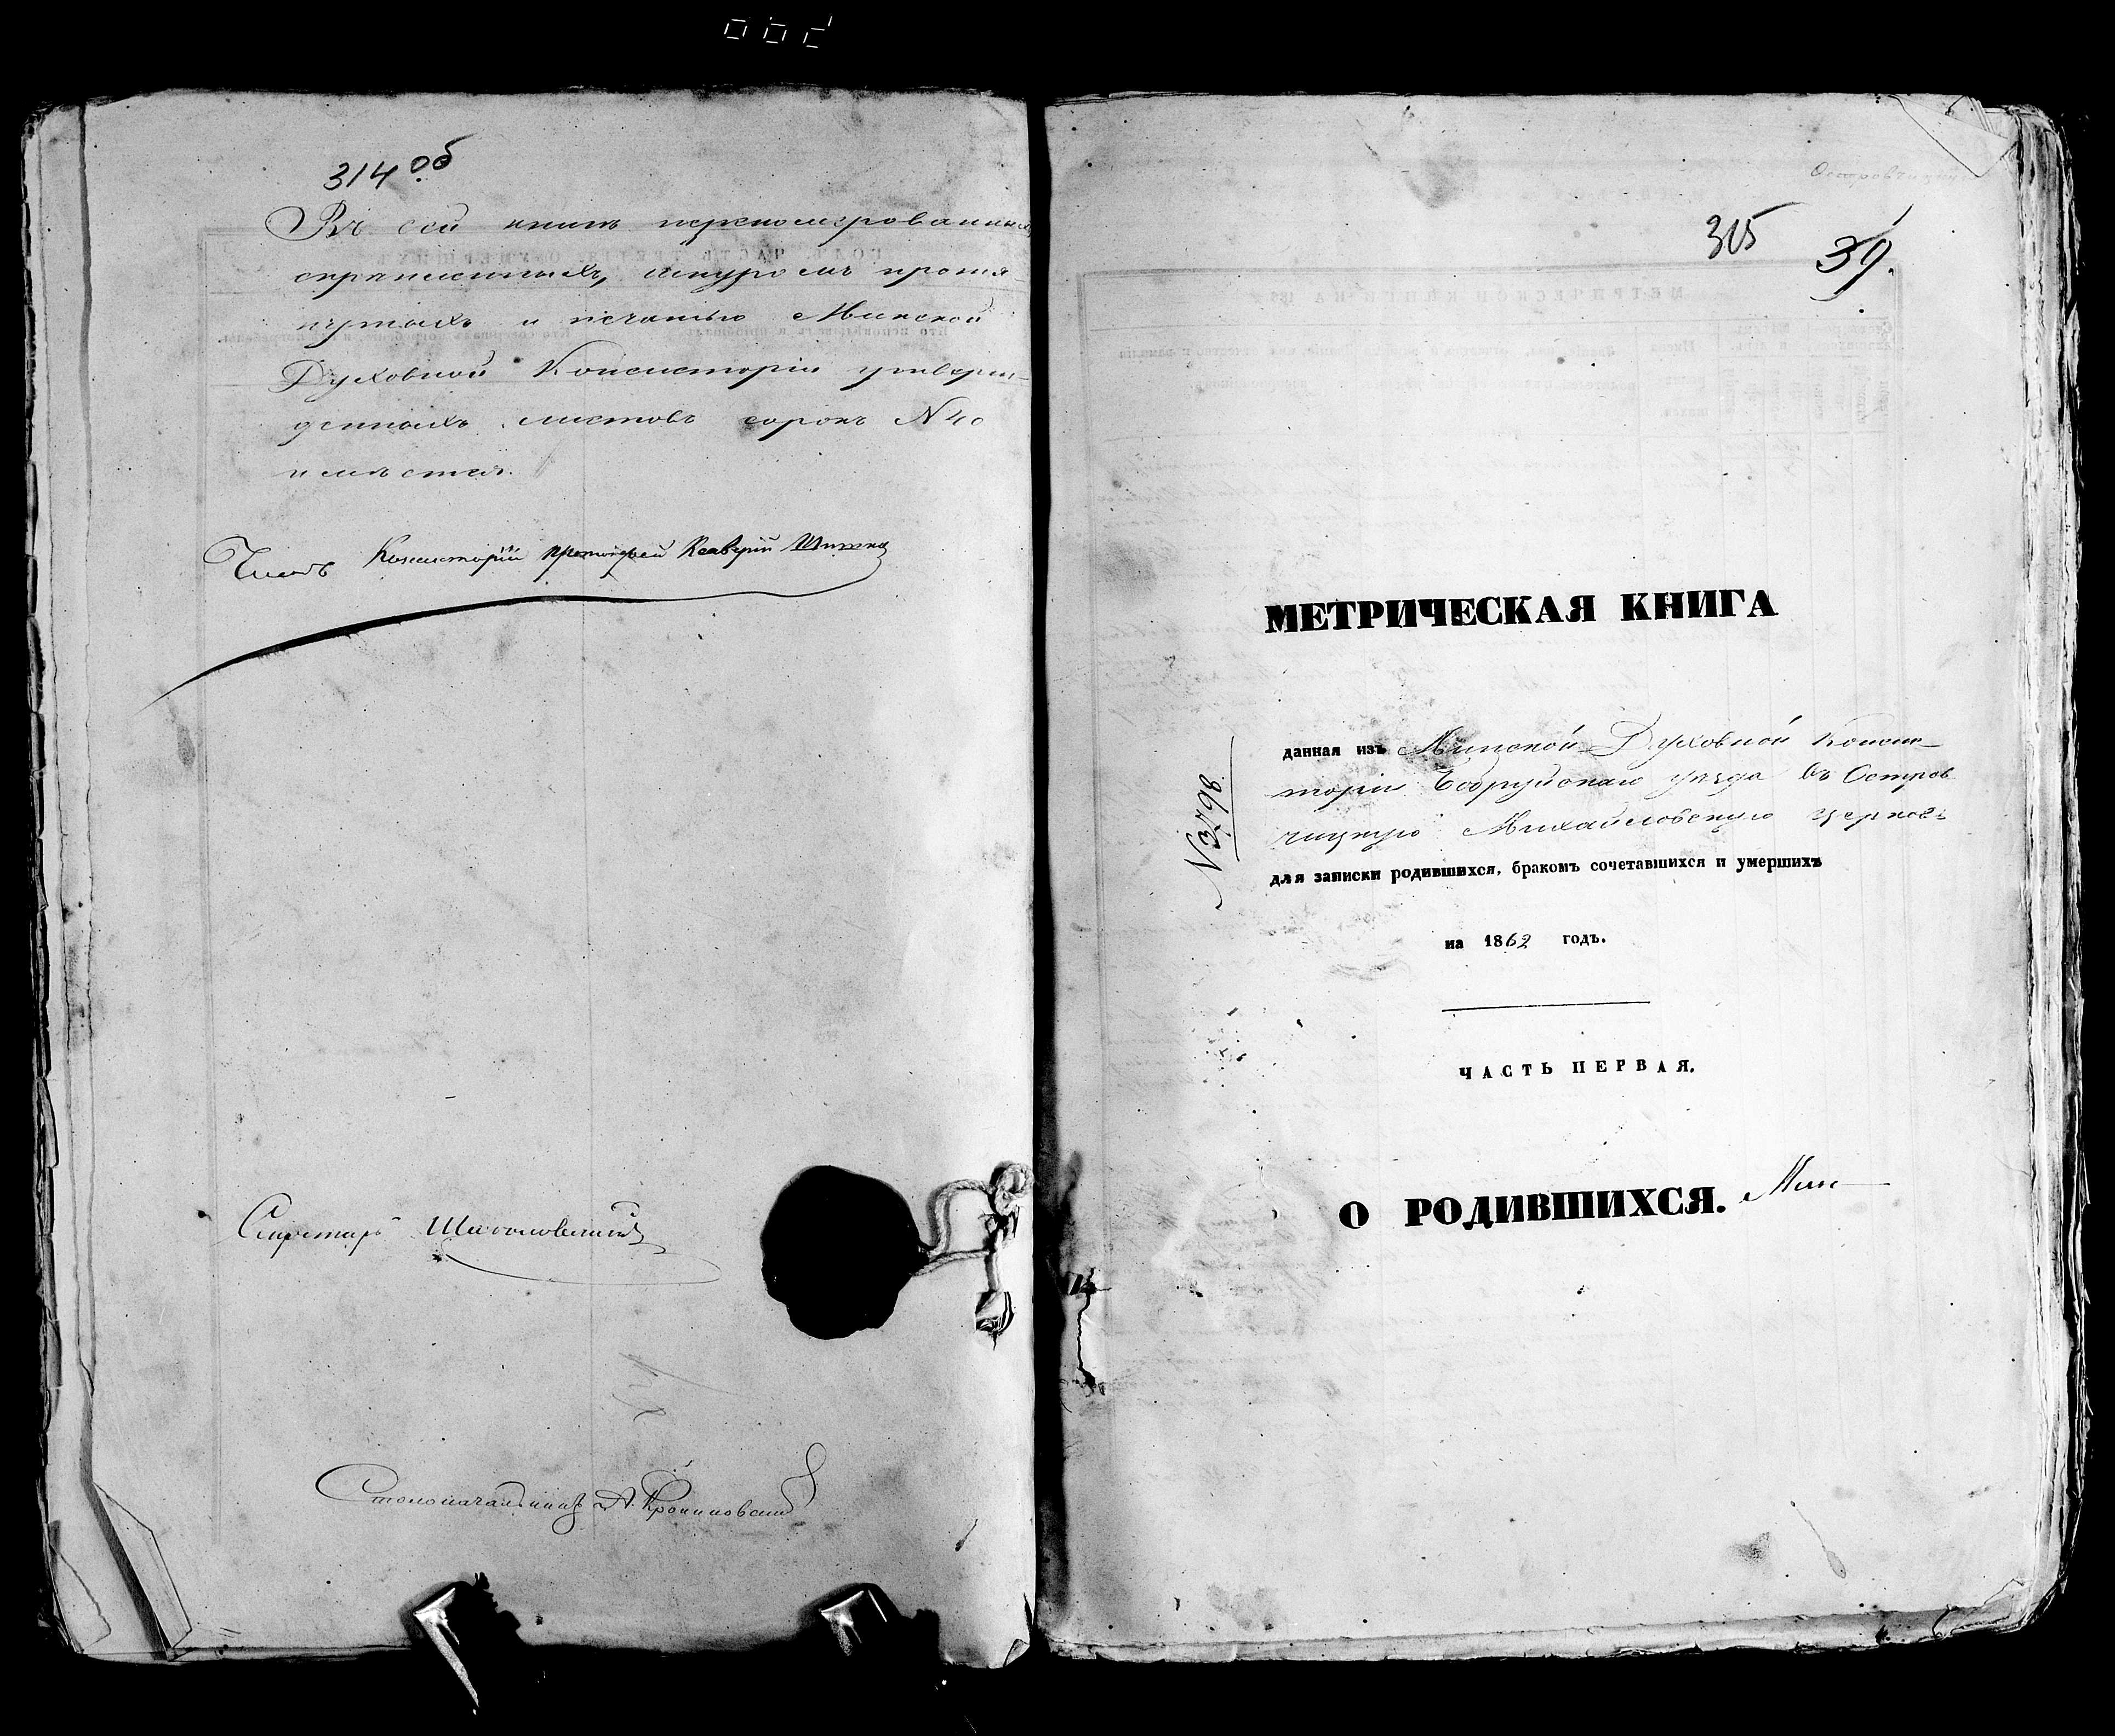 314 об
Въ сей книгѣ перенумерованныхъ,
скрѣпленныхъ, шнуромъ протя-
нутыхъ и печатью Минской
Духовной Консисторіи утверж-
денныхъ листовъ сорокъ N 40
имѣется.
Членъ Консисторіи Протоіерей Ксаверій
Секретарь
Столоначальникъ А.
315 39.
МЕТРИЧЕСКАЯ КНИГА
данная изъ Минской Духовной Консис-
торіи Бобруйскаго уѣзда въ Остров
чицкую Михайловскую церковь
N 3798
для записки родившихся, бракомъ сочетавшихся и умершихъ
на 1862 годъ.
ЧАСТЬ ПЕРВАЯ.
О РОДИВШИХСЯ. Мин